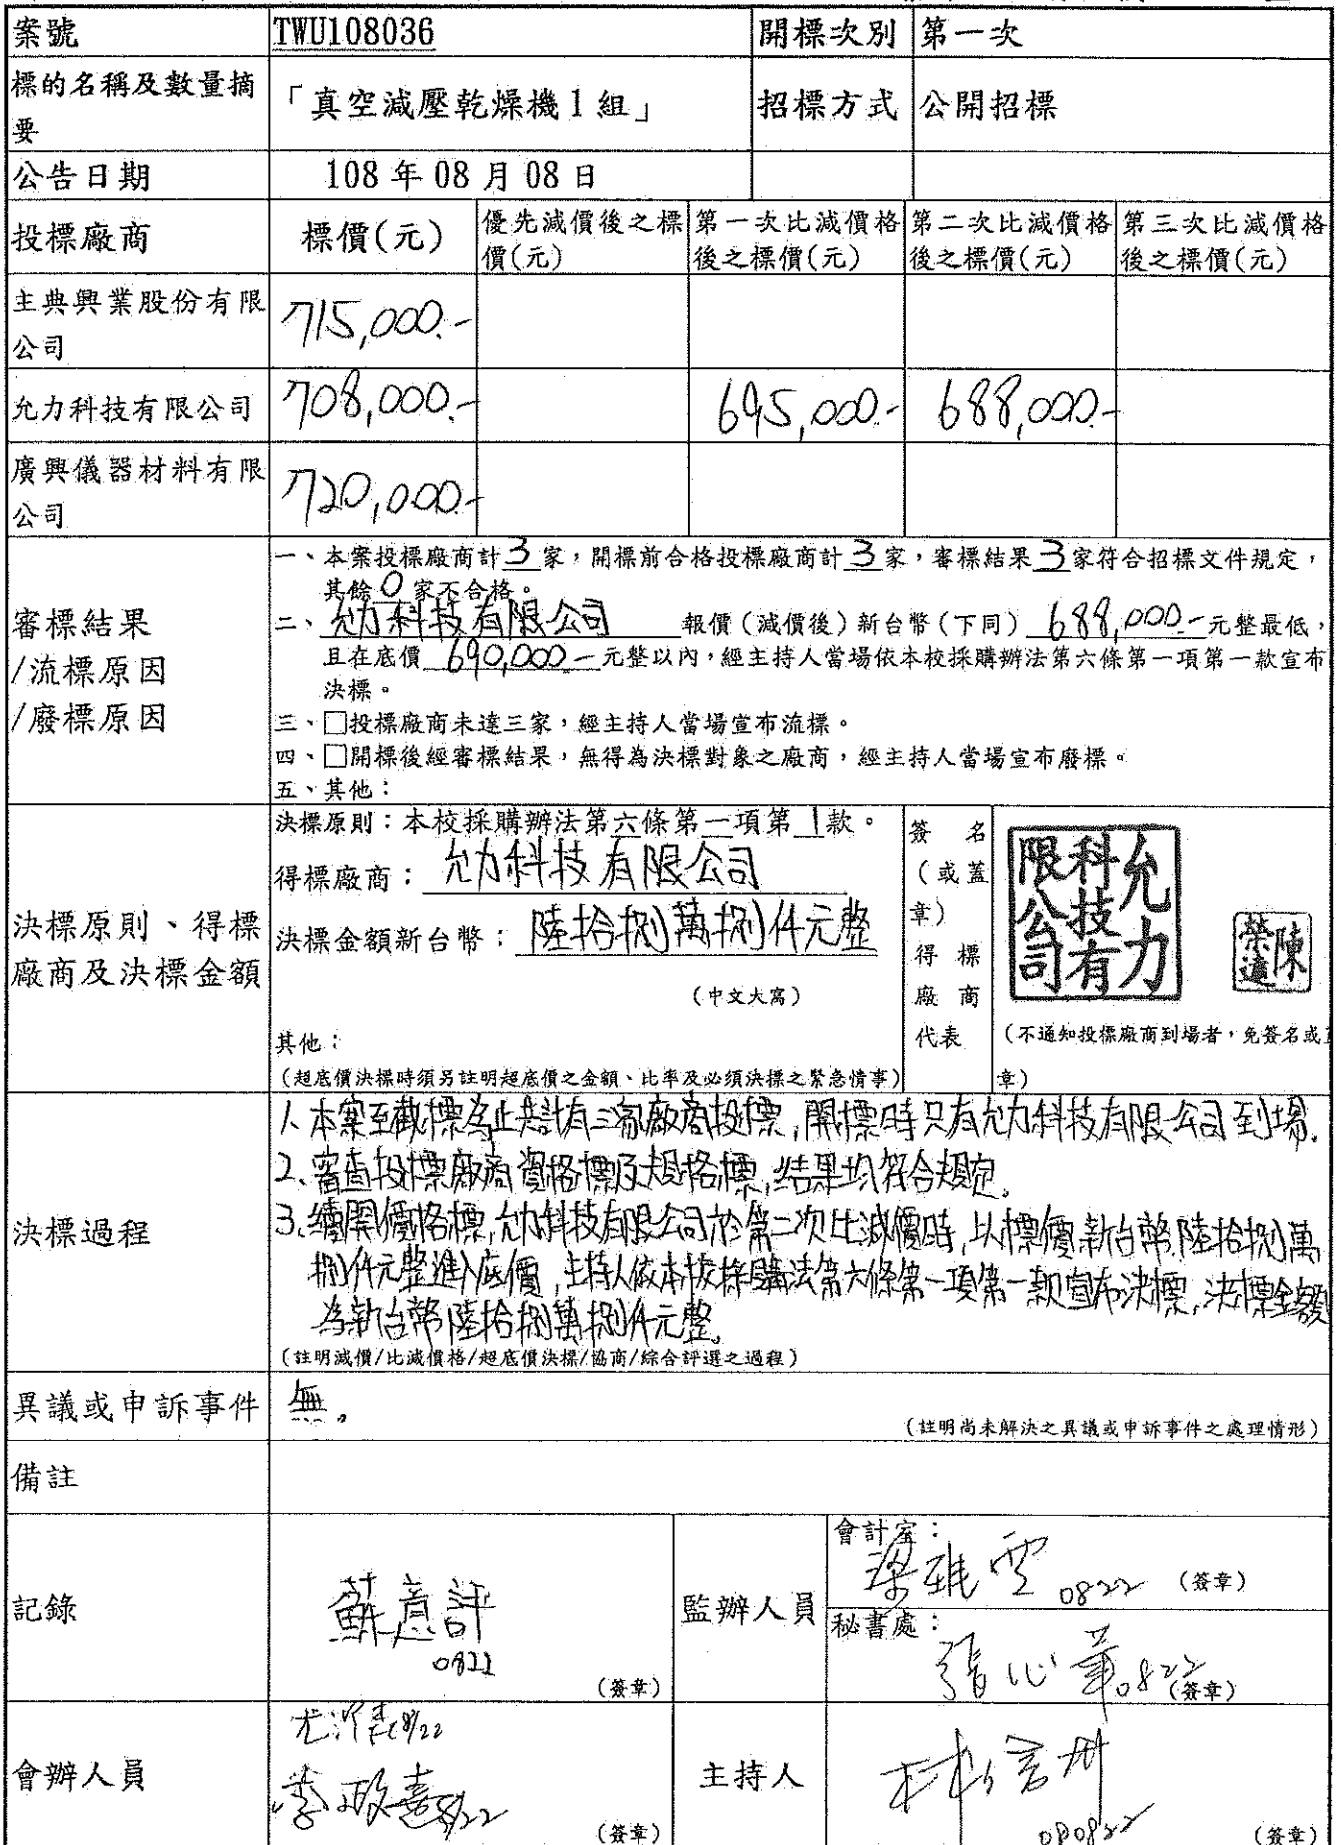 案號 TWU108036 開標次別 第一次
標的名稱及數量摘要 「真空減壓乾燥機1組」 招標方式 公開招標
公告日期 108 年 08 月 08 日
投標廠商 標價(元) 優先減價後之標價(元) 第一次比減價格後之標價(元) 第二次比減價格後之標價(元) 第三次比減價格後之標價(元)
主典興業股份有限公司 715,000.-
允力科技有限公司 708,000.- 695,000.- 688,000.-
廣興儀器材料有限公司 720,000.-
審標結果
/流標原因
/廢標原因
一、本案投標廠商計 3 家,開標前合格投標廠商計 3 家,審標結果 3 家符合招標文件規定,
其餘 0 家不合格。
二、允力科技有限公司 報價(減價後)新台幣(下同) 688,000.- 元整最低,
且在底價 690,000- 元整以內,經主持人當場依本校採購辦法第六條第一項第一款宣布
決標。
三、□投標廠商未達三家,經主持人當場宣布流標。
四、□開標後經審標結果,無得為決標對象之廠商,經主持人當場宣布廢標。
五、其他:
決標原則、得標
廠商及決標金額
決標原則:本校採購辦法第六條第一項第1款。
得標廠商:允力科技有限公司
決標金額新台幣:陸拾捌萬捌仟元整
(中文大寫)
其他:
(超底價決標時須另註明超底價之金額、比率及必須決標之緊急情事)
簽名
(或蓋
章)
得標
廠商
代表
允力科技有限公司
陳榮
(不通知投標廠商到場者,免簽名或
章)
決標過程
1、本案至截標為止共計有三家廠商投標,開標時只有允力科技有限公司到場.
2、審查投標廠商資格標及規格標,結果均符合規定.
3、續開價格標,允力科技有限公司於第二次比減價時,以標價新台幣陸拾捌萬
捌仟元整進入底價,主持人依本校採購法第六條第一項第一款宣布決標,決標金額
為新台幣陸拾捌萬捌仟元整。
(註明減價/比減價格/超底價決標/協商/綜合評選之過程)
異議或申訴事件 無。
(註明尚未解決之異議或申訴事件之處理情形)
備註
記錄 蘇意評
0822
(簽章)
監辦人員
會計室:
梁雅雯 0822 (簽章)
秘書處:
張心華 0822 (簽章)
會辦人員
8/22
李政熹 8/22
(簽章)
主持人
林信州
080822 (簽章)